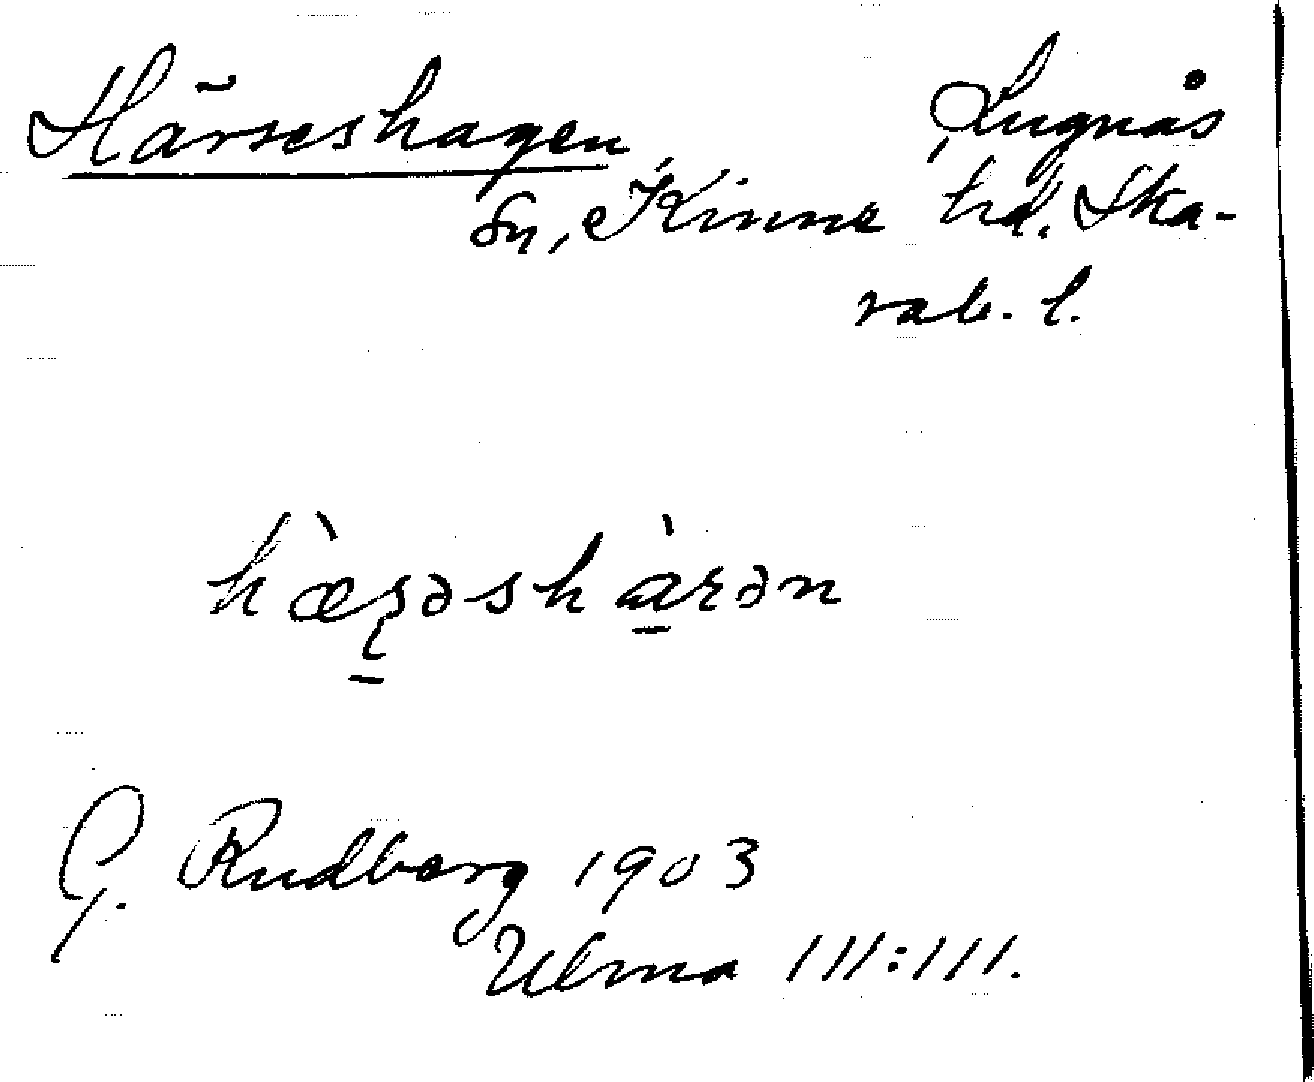 Härseshagen Lugnås
sn, Kinne hd. Ska-
rab. l.
hæ̀ʂəshàrən
G. Rudberg 1903
Ulma 111:111.